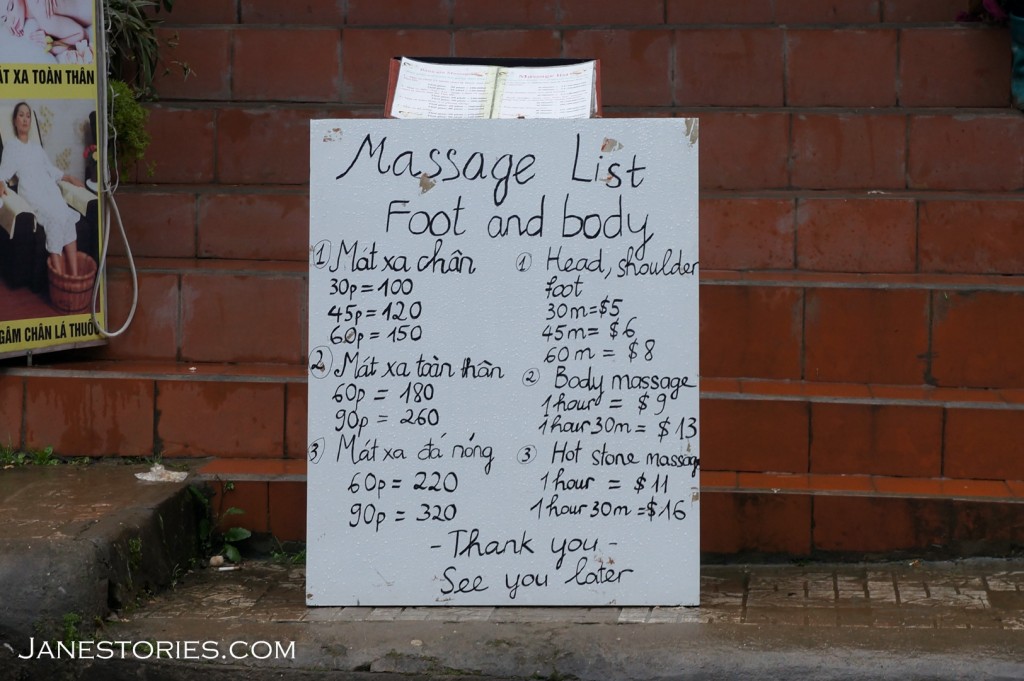 ÁT XA TOÀN THÂN
GÂM CHÂN LÁ THUỐC
Massage List
Foot and body
① Mát xa chân
30p = 100
45p = 120
60p = 150
② Mát xa toàn thân
60p = 180
90p = 260
③ Mát xa đá nóng
60p = 220
90p = 320
① Head, shoulder
foot
30m = $5
45m = $6
60m = $8
② Body massage
1 hour = $9
1 hour 30m = $13
③ Hot stone massage
1 hour = $11
1 hour 30m = $16
- Thank you -
See you later
JANESTORIES.COM